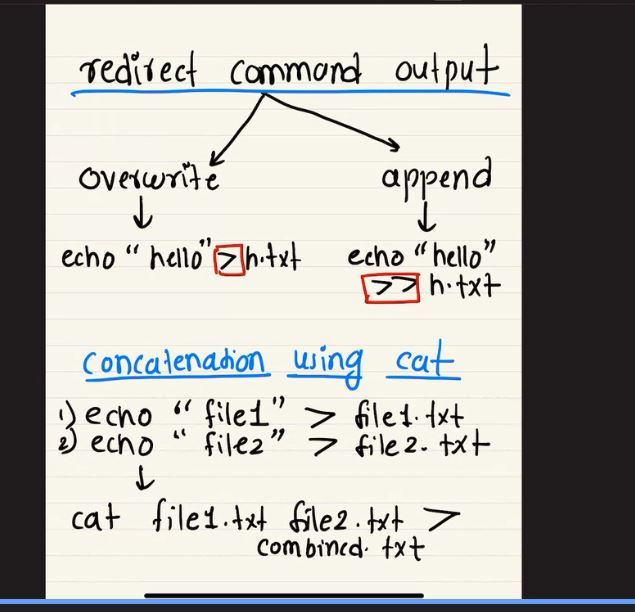 redirect command output
overwrite append
echo "hello" > h.txt echo "hello"
>> h.txt
concatenation using cat
1) echo "file1" > file1.txt
2) echo "file2" > file2.txt
cat file1.txt file2.txt >
combined.txt